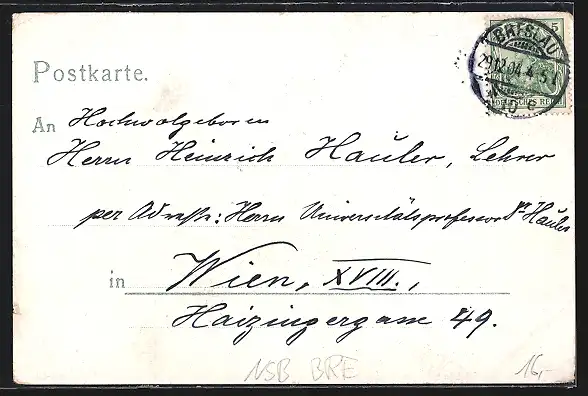 BRESLAU
29.12.04.4-5 N
* 10 *
5
DEUTSCHES REICH
Postkarte.
An Hochwolgeboren
Herrn Heinrich Hauler, Lehrer
per Adresse: Herrn Universitätsprofessor Dr Hauler
in Wien, XVIII.,
Haizingergasse 49.
NSB BRE
16,-